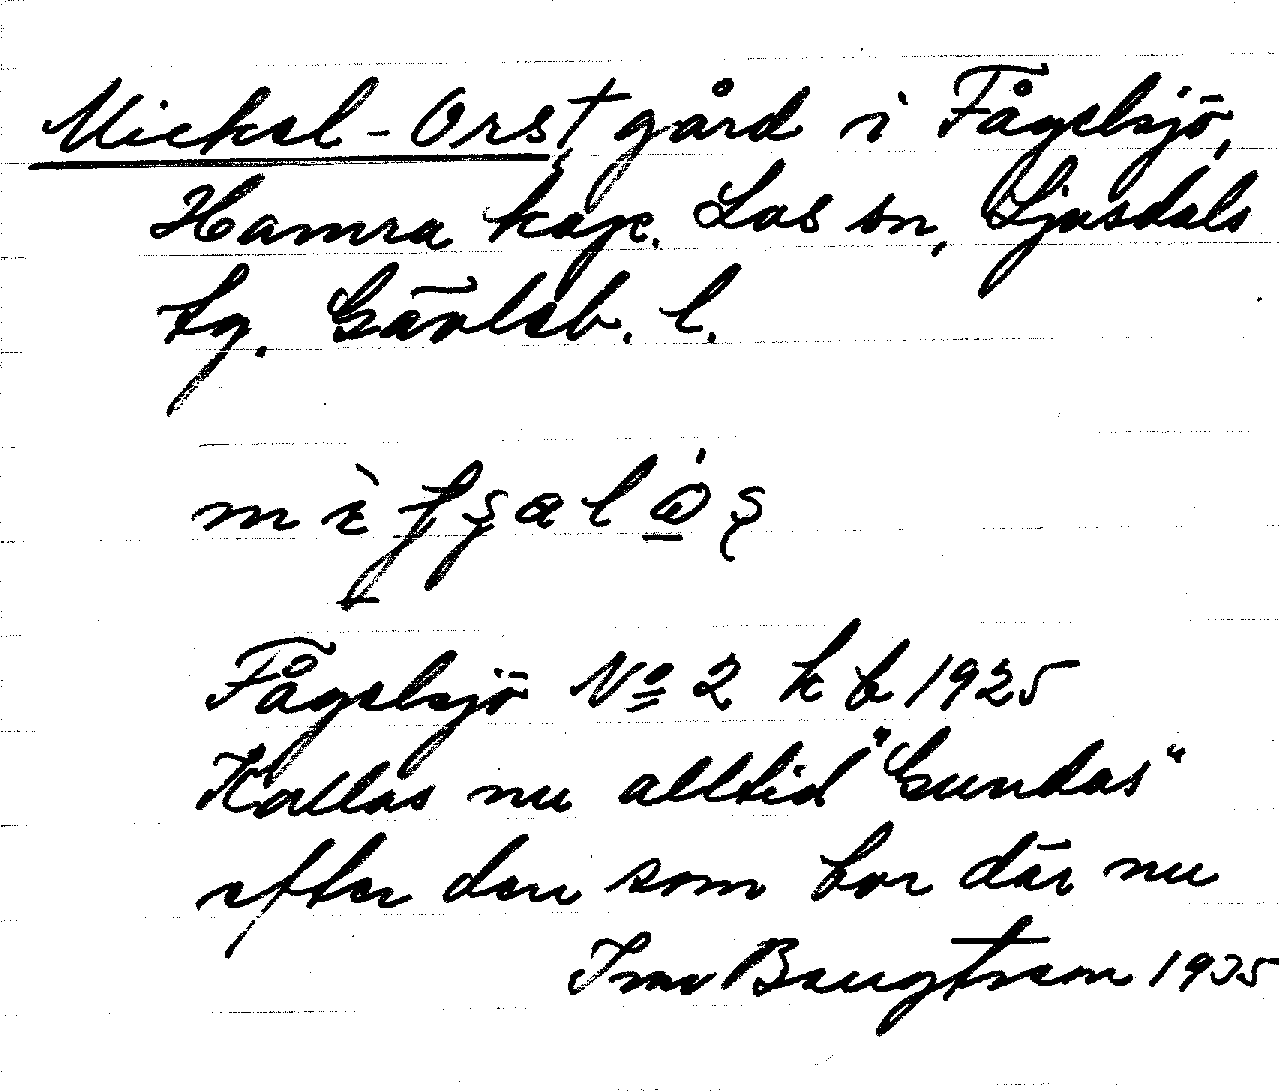 Mickel-Orst gård i Fågelsjö,
Hamra kap. Los sn, Ljusdals
tg. Gävleb. l.
Fågelsjö No 2 k b 1925
Kallas nu alltid "Gundas"
efter den som bor där nu
Bengtsson 1935